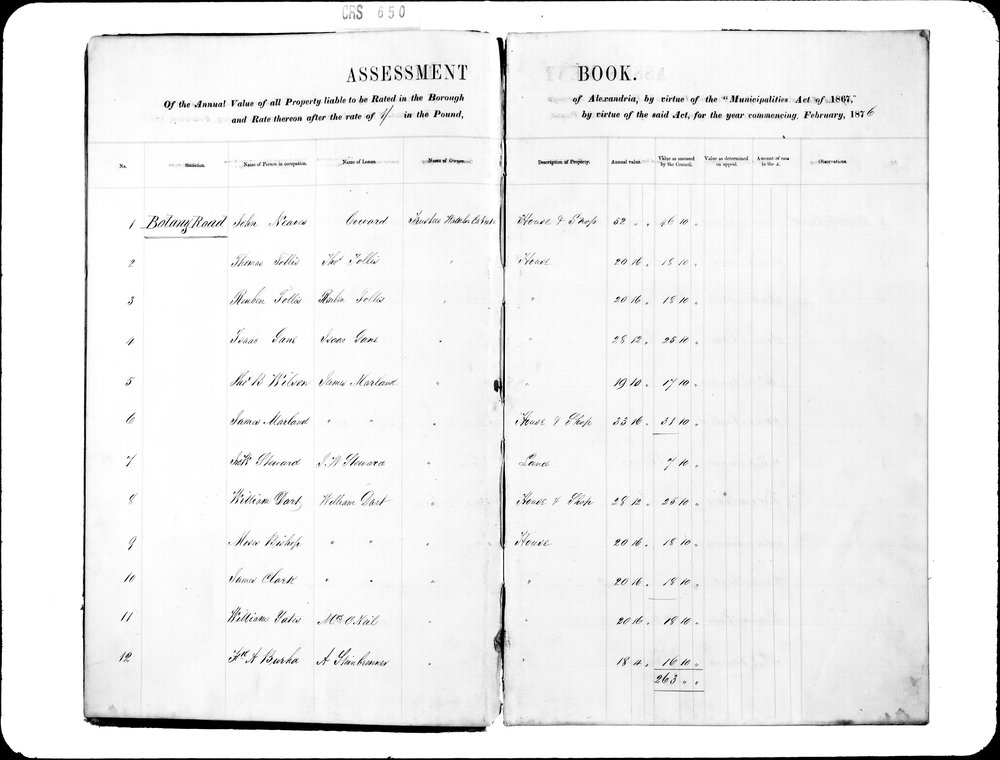 CRS 650
ASSESSMENT BOOK.
Of the Annual Value of all Property liable to be Rated in the Borough of Alexandria, by virtue of the "Municipalities Act of 1867,"
and Rate thereon after the rate of 1/ in the Pound, by virtue of the said Act, for the year commencing February, 1876
No. Situation. Name of Person in occupation. Name of Lessee. Name of Owner. Description of Property. Annual value. Value as assessed by the Council. Value as determined on appeal. Amount of rate in the £. Observations.
1 Botany Road John Neaves Coward Trustees House & Shop 52 " " 46 10 "
2 Thomas Tollis Thos Tollis " House 20 16 " 18 10 "
3 Reuben Tollis Reuben Tollis " " 20 16 " 18 10 "
4 Isaac Gane Isaac Gane " " 28 12 " 25 10 "
5 Thos B Wilson James Marland " " 19 10 " 17 10 "
6 James Marland " " " House & Shop 33 16 " 31 10 "
7 Steward J. W Steward " Land 7 10 "
8 William Dart William Dart " House & Shop 28 12 " 25 10 "
9 Bishop " " " House 20 16 " 18 10 "
10 James Clark " " " " 20 16 " 18 10 "
11 William Yates Mrs O'Neil " " 20 16 " 18 10 "
12 A Burke A Steinbrenner " " 18 4 " 16 10 "
263 " "